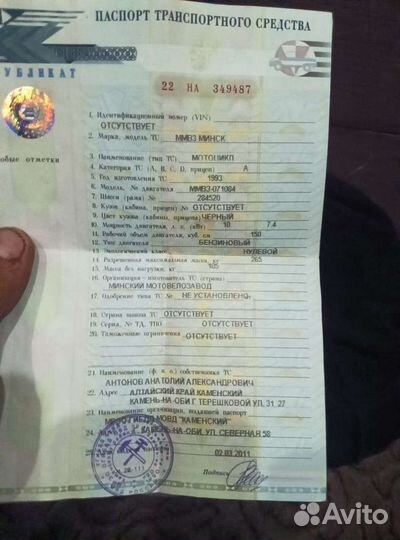 ПАСПОРТ ТРАНСПОРТНОГО СРЕДСТВА
УБЛИКАТ
22 НА 349487
обые отметки
1. Идентификационный номер (VIN)
ОТСУТСТВУЕТ
2. Марка, модель ТС ММВЗ МИНСК
3. Наименование (тип ТС) МОТОЦИКЛ
4. Категория ТС (А, В, С, D, прицеп) А
5. Год изготовления ТС 1993
6. Модель, № двигателя ММВЗ-071084
7. Шасси (рама) № 284520
8. Кузов (кабина, прицеп) № ОТСУТСТВУЕТ
9. Цвет кузова (кабины, прицепа) ЧЕРНЫЙ
10. Мощность двигателя, л. с. (кВт) 10 7.4
11. Рабочий объем двигателя, куб. см 150
12. Тип двигателя БЕНЗИНОВЫЙ
13. Экологический класс НУЛЕВОЙ
14. Разрешенная максимальная масса, кг 265
15. Масса без нагрузки, кг 105
16. Организация—изготовитель ТС (страна)
МИНСКИЙ МОТОВЕЛОЗАВОД
17. Одобрение типа ТС № НЕ УСТАНОВЛЕНО
18. Страна вывоза ТС ОТСУТСТВУЕТ
19. Серия, № ТД, ТПО ОТСУТСТВУЕТ
20. Таможенные ограничения ОТСУТСТВУЕТ
21. Наименование (ф. и. о.) собственника ТС
АНТОНОВ АНАТОЛИЙ АЛЕКСАНДРОВИЧ
22. Адрес АЛТАЙСКИЙ КРАЙ КАМЕНСКИЙ
КАМЕНЬ-НА-ОБИ Г ТЕРЕШКОВОЙ УЛ, 31 27
23. Наименование организации, выдавшей паспорт
ГИБДД МОВД "КАМЕНСКИЙ"
24. КАМЕНЬ-НА-ОБИ, УЛ. СЕВЕРНАЯ 58
02.03.2011
Подпись
Avito